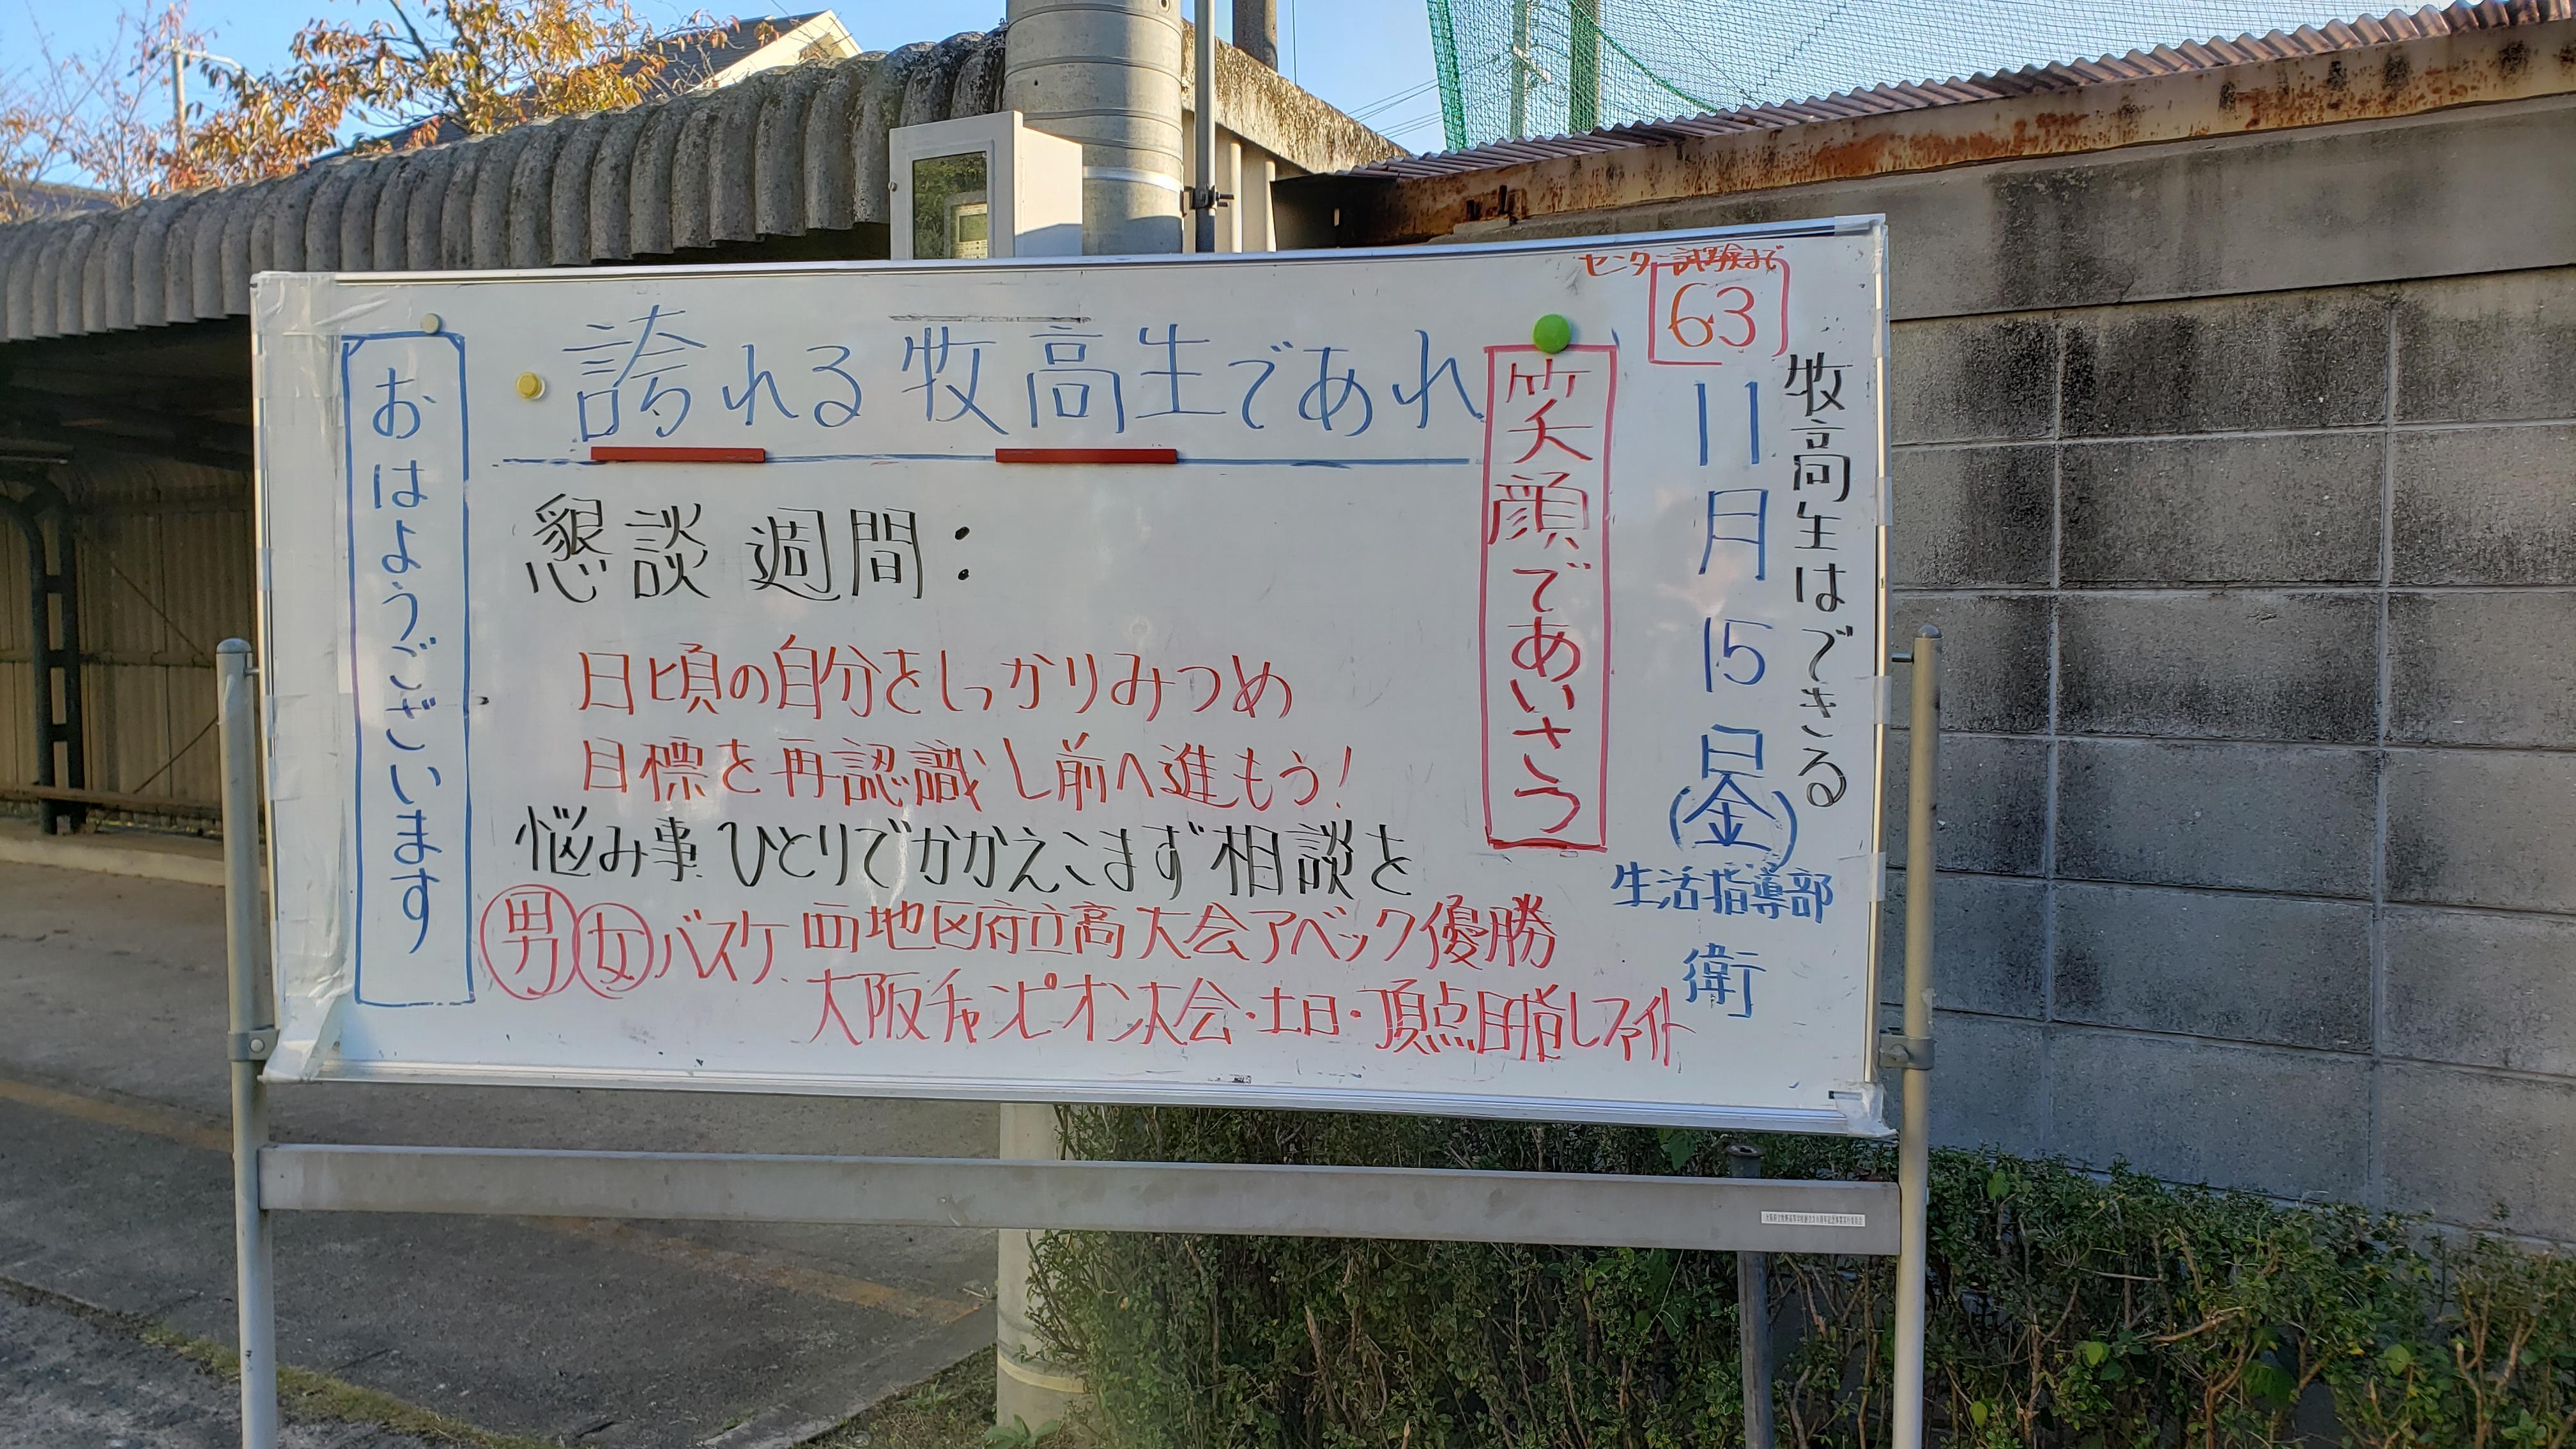 センター試験まで
63
牧高生はできる
11月15日(金)
生活指導部
衛
笑顔であいさつ
誇れる牧高生であれ
懇談週間：
日頃の自分をしっかりみつめ
目標を再認識し前へ進もう！
悩み事ひとりでかかえこまず相談を
男女バスケ 西地区府立高大会アベック優勝
大阪チャンピオン大会・土日・頂点目指しファイト
おはようございます